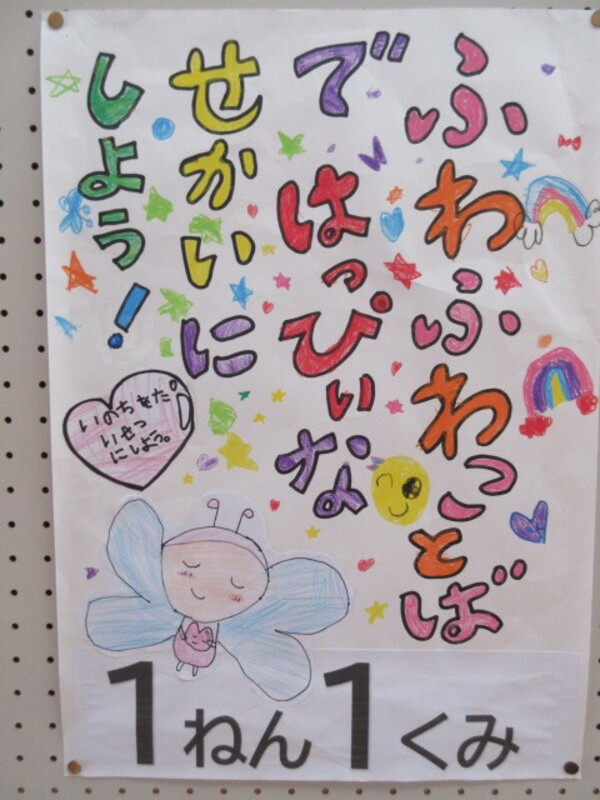 ふわふわことば
で　はっぴぃな
せかいに
しよう！
いのちをた
いせつ
にしよう。
1ねん1くみ